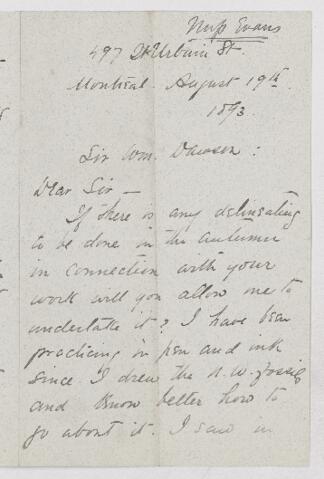 Miss Evans
497 St Urbain St.
Montreal. August 19th.
1893.
Sir Wm. Dawson:
Dear Sir —
If there is any delineating
to be done in the autumn
in connection with your
work will you allow me to
undertake it? I have been
practicing in pen and ink
since I drew the N.W. fossils
and know better how to
go about it. I saw in